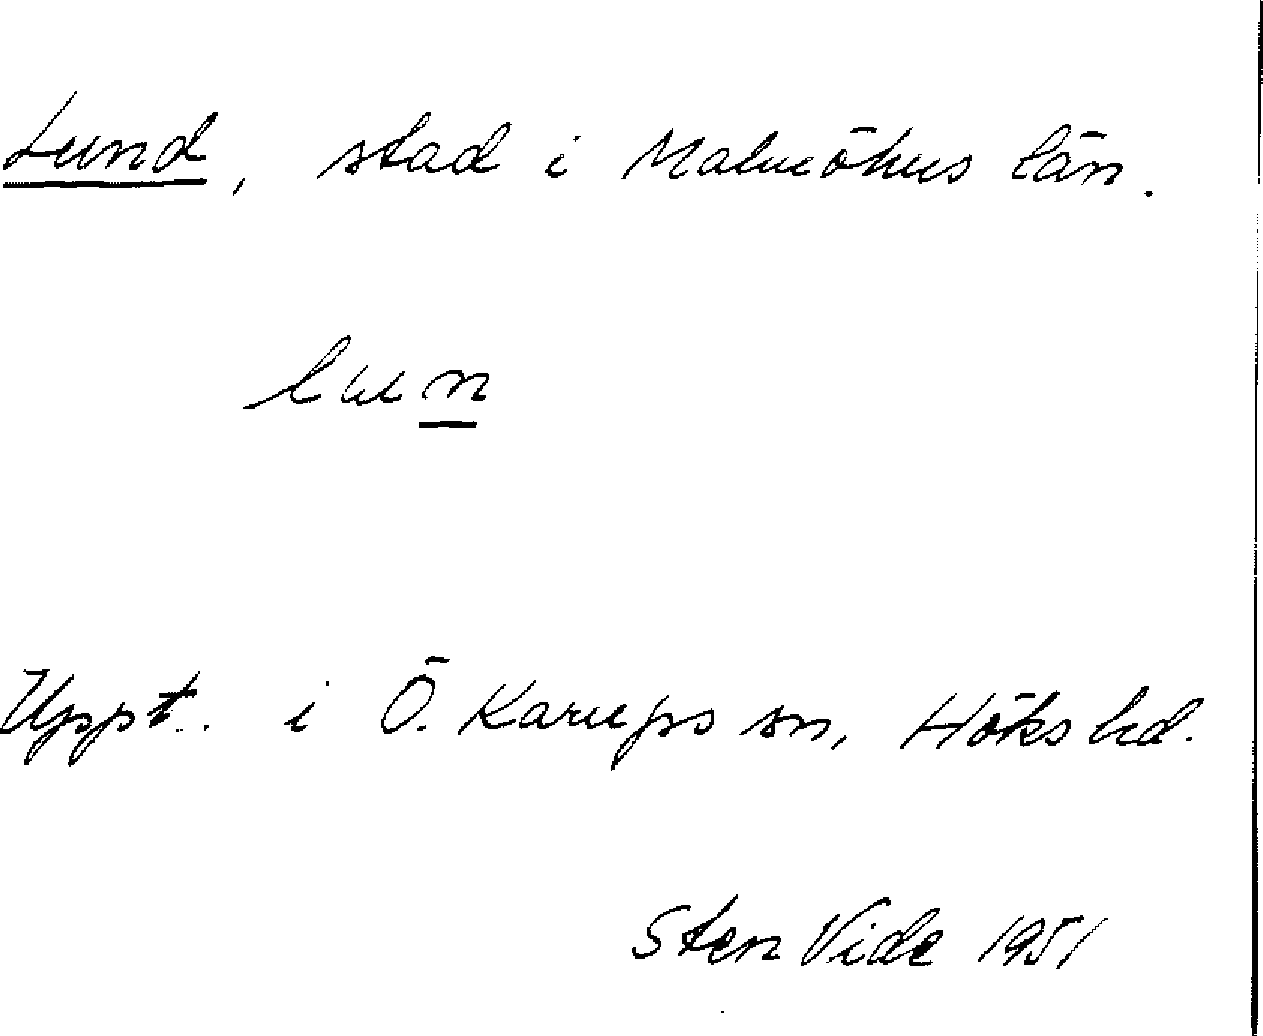 Lund, stad i Malmöhus län.
lun
Uppt. i Ö. Karups sn, Höks hd.
Sten Vide 1951